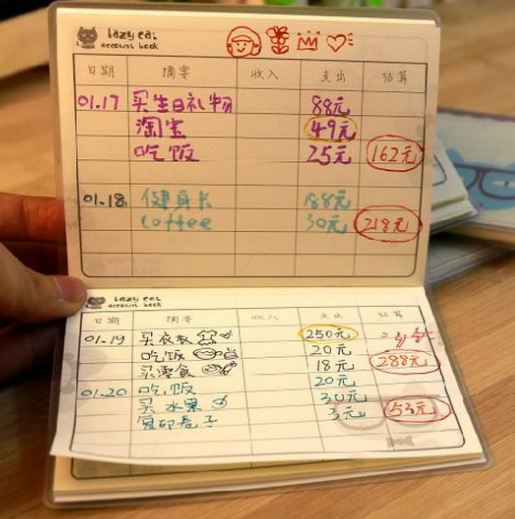 lazy cat
account book
日期 摘要 收入 支出 结算
01.17 买生日礼物 88元
淘宝 49元
吃饭 25元 162元
01.18 健身卡 188元
coffee 30元 218元
lazy cat
account book
日期 摘要 收入 支出 结算
01.19 买衣衣 250元
吃饭 20元
买零食 18元 288元
01.20 吃饭 20元
买水果 30元
复印卷子 3元 53元